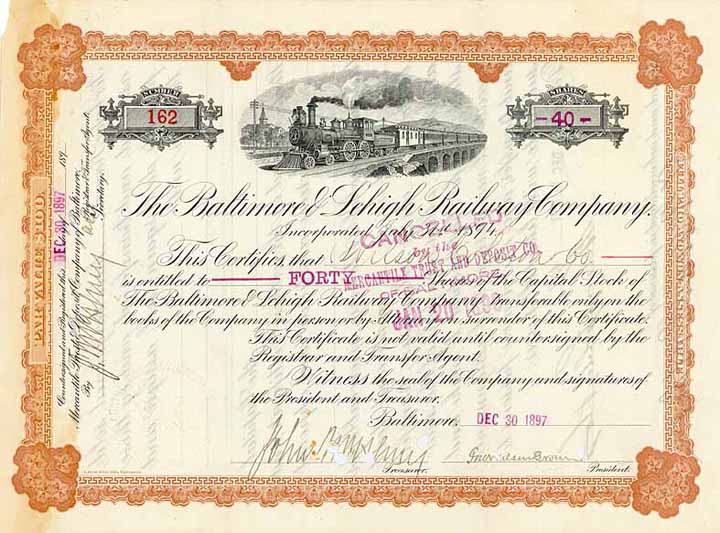 NUMBER
162
SHARES
-40-
The Baltimore & Lehigh Railway Company.
Incorporated July 2nd 1894.
This Certifies that Wilson, & Co.
is entitled to FORTY Shares of the Capital Stock of
The Baltimore & Lehigh Railway Company transferable only on the
books of the Company in person or by Attorney on surrender of this Certificate.
This Certificate is not valid until countersigned by the
Registrar and Transfer Agent.
Witness the seal of the Company and signatures of
the President and Treasurer.
Baltimore, DEC 30 1897
Treasurer.
President.
CANCELLED
by the
MERCANTILE TRUST AND DEPOSIT CO.
OF BALTIMORE
JAN 20
PAR VALUE $100.
Countersigned and Registered this DEC 30 1897 189
Mercantile Trust & Deposit Company of Baltimore,
Registrar and Transfer Agent.
By
Secretary.